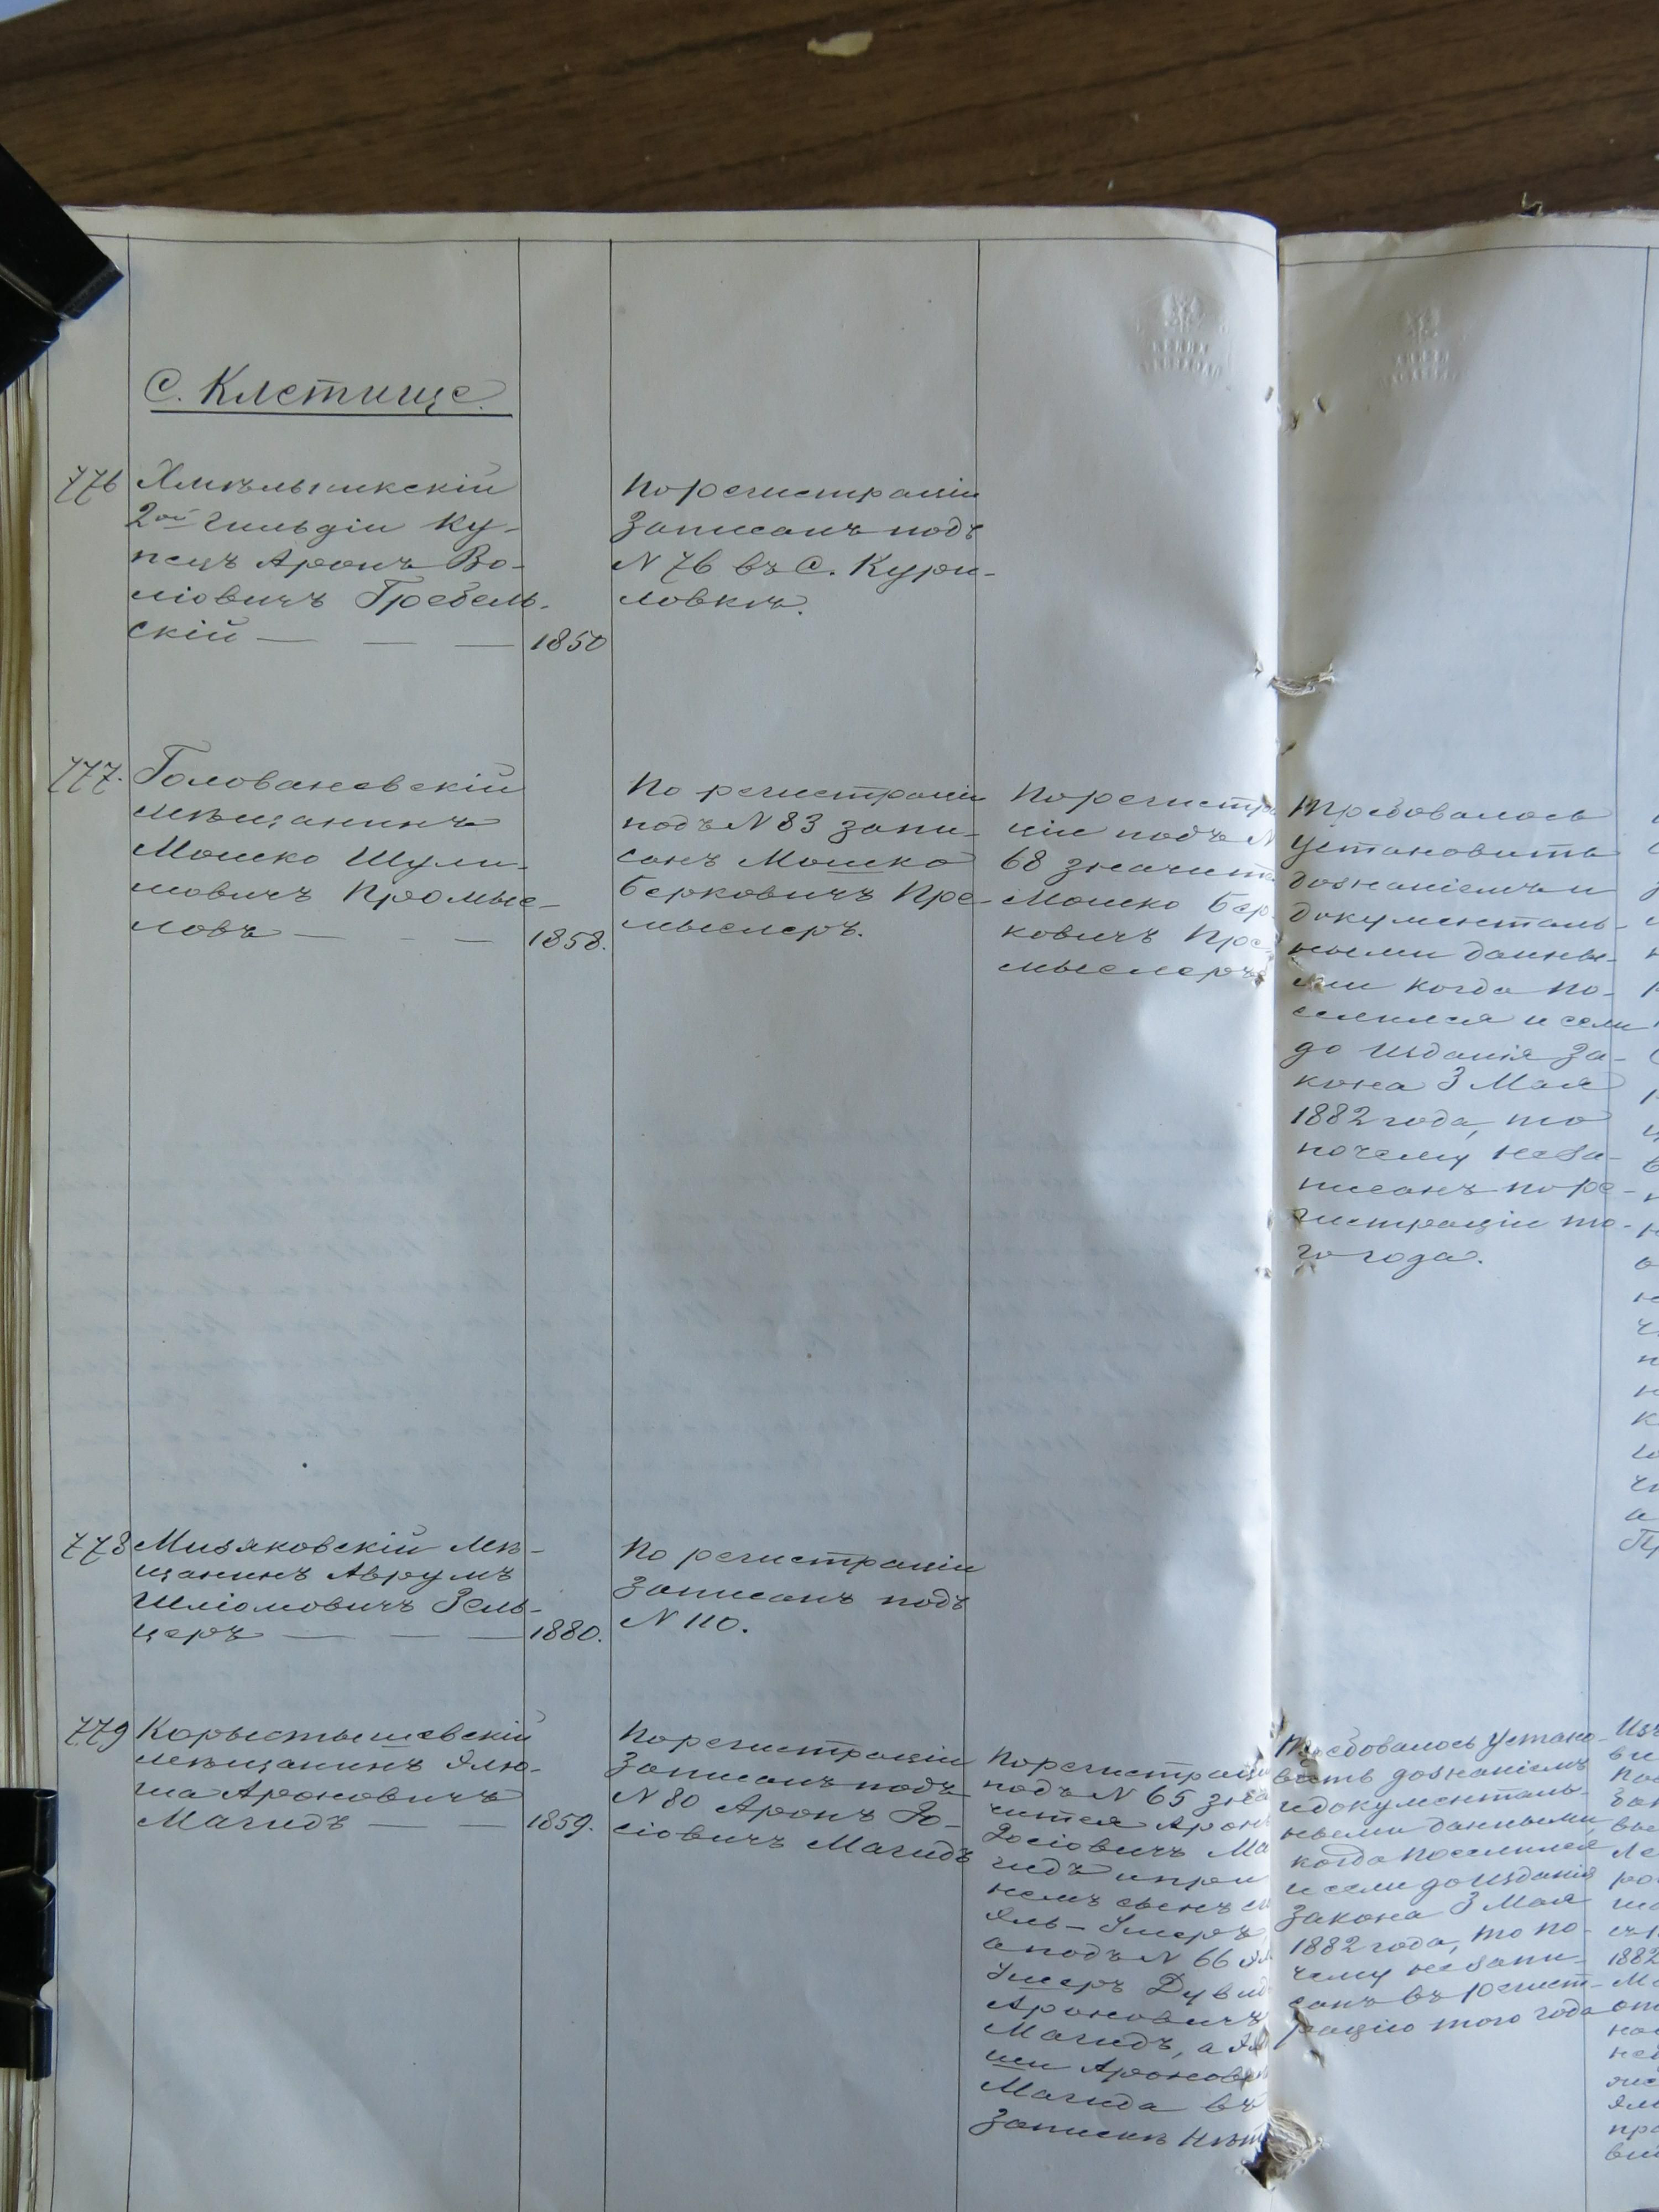 С. Клетище.
776
Хмѣльникскій
2ой гильдіи ку-
пецъ Аронъ Во-
ліовичъ Гребель-
скій — — — 1850
По регистраціи
записанъ подъ
N 76 въ С. Кури-
ловкѣ.
777.
Голованевскій
мѣщанинъ
Мошко Шули-
мовичъ Промыс-
ловъ — — — 1858.
По регистраціи
подъ N 83 запи-
санъ Мошко
Берковичъ Пре-
мыслеръ.
По регистра
ціи подъ N
68 значит
Мошко Бер-
ковичъ Пре-
мыслеръ
Требовалось
установить
дознаніемъ и
документаль-
ными данны-
ми когда по-
селился и если
до изданія За-
кона 3 Мая
1882 года, то
почему не за-
писанъ по ре-
гистраціи то-
го года.
778
Мизяковскій мѣ-
щанинъ Аврумъ
Шліомовичъ Зель-
церъ — — — 1880.
По регистраціи
записанъ подъ
N 110.
779
Коростышевскій
мѣщанинъ Элю-
ша Ароновичъ
Магидъ — — 1859.
По регистраціи
записанъ подъ
N 80 Аронъ Іо-
сіовичъ Магидъ
По регистраціи
подъ N 65 зна
чится Аронъ
Іосіовичъ Ма
гидъ и при
немъ сынъ
Эль-Умеръ
а подъ N 66
Умеръ Дувид
Ароновичъ
Магидъ, а
Ароновича
Магида въ
записки нѣт
Требовалось устано-
вить дознаніемъ
и документаль-
ными данными,
когда поселился
и если до изданія
Закона 3 Мая
1882 года, то по-
чему не запи-
санъ въ регист-
рацію того года
1882